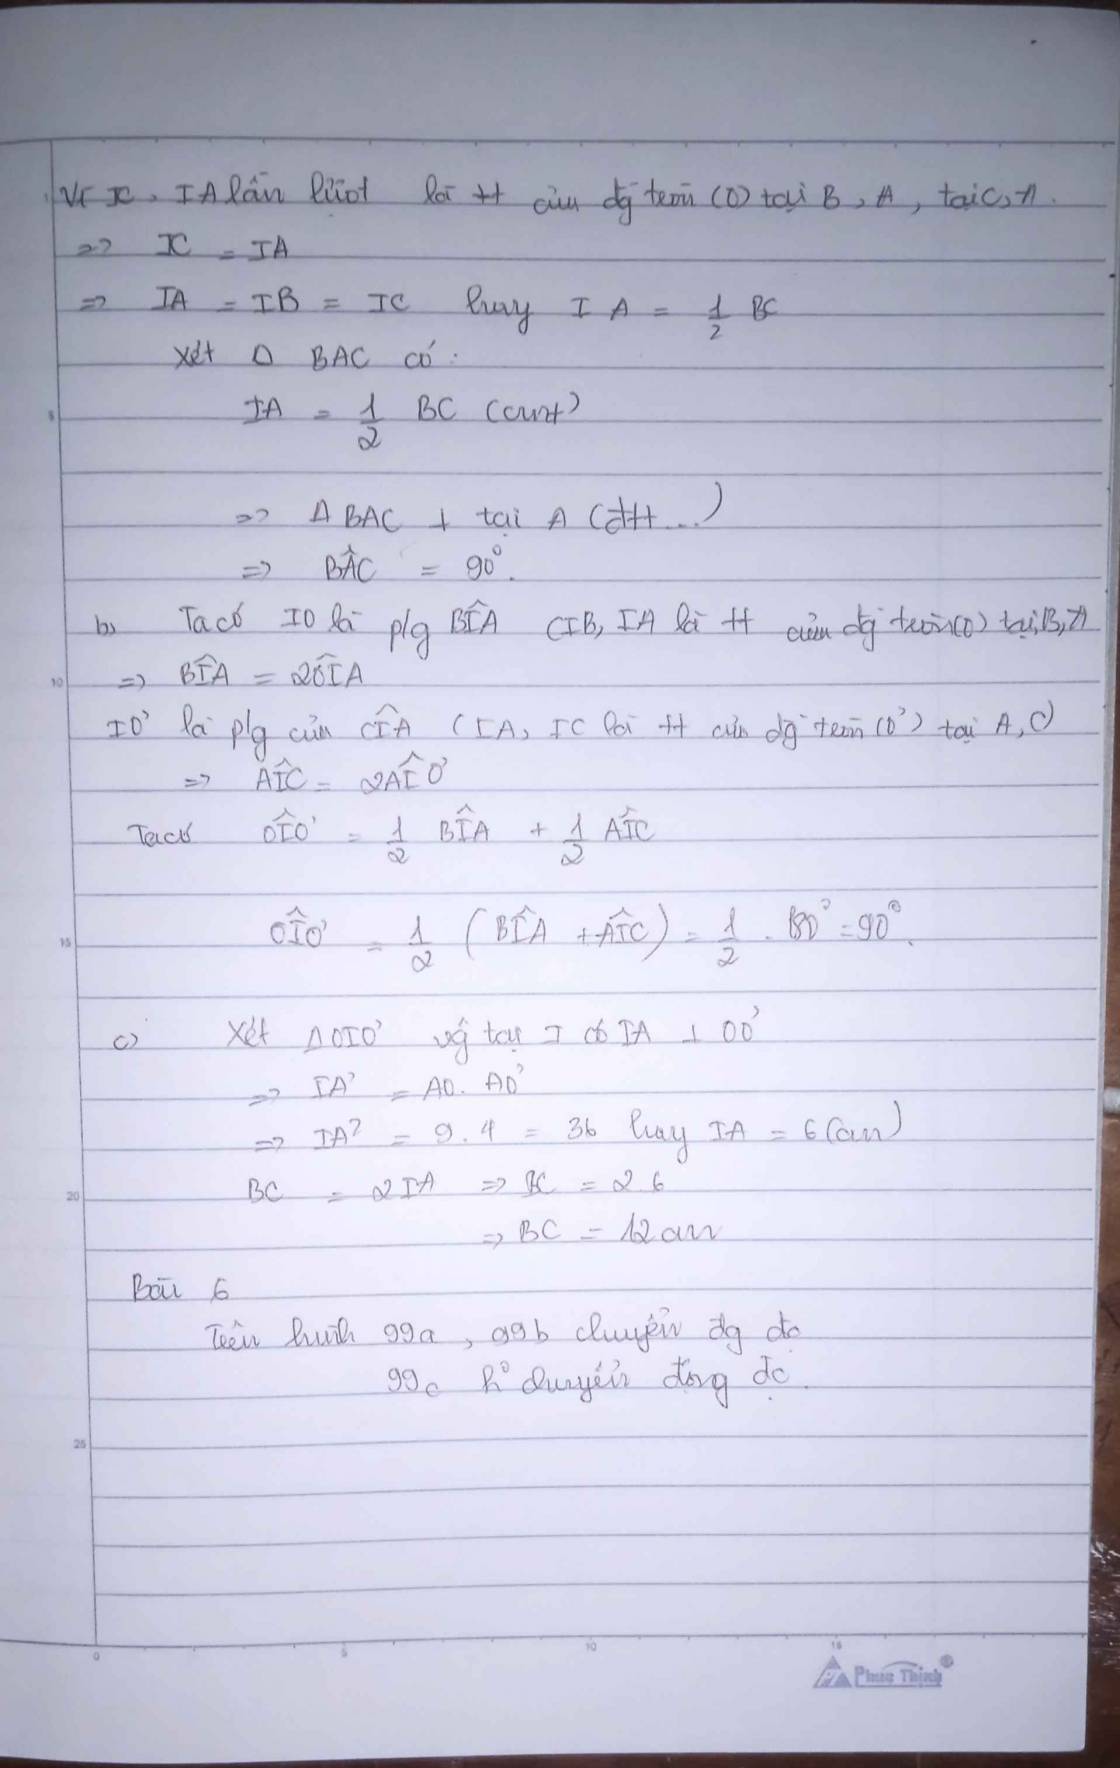 Vì IC, IA lần lượt là tt của đg tròn (O) tại B, A, tại C, A.
=> IC = IA
=> IA = IB = IC hay IA = 1/2 BC
Xét Δ BAC có:
5
IA = 1/2 BC (cmt)
=> Δ BAC ⊥ tại A (đ/l ...)
=> BÂC = 90°.
b) Ta có IO là p/g BÎA (IB, IA là tt của đg tròn (O) tại B, A
10
=> BÎA = 2OÎA
IO' là p/g của CÎA (IA, IC là tt của đg tròn (O') tại A, C)
=> AÎC = 2AÎO'
Ta có OÎO' = 1/2 BÎA + 1/2 AÎC
15
OÎO' = 1/2 (BÎA + AÎC) = 1/2 . 180° = 90°.
c) Xét Δ OIO' vg tại I có IA ⊥ OO'
=> IA² = AO. AO'
=> IA² = 9.4 = 36 hay IA = 6 (cm)
20
BC = 2IA => BC = 2.6
=> BC = 12cm
Bài 6
Trên hình 99a, 99b chuyển đg đc
99c k° chuyển động đc.
25
0 5 10 15
Phúc Thịnh®